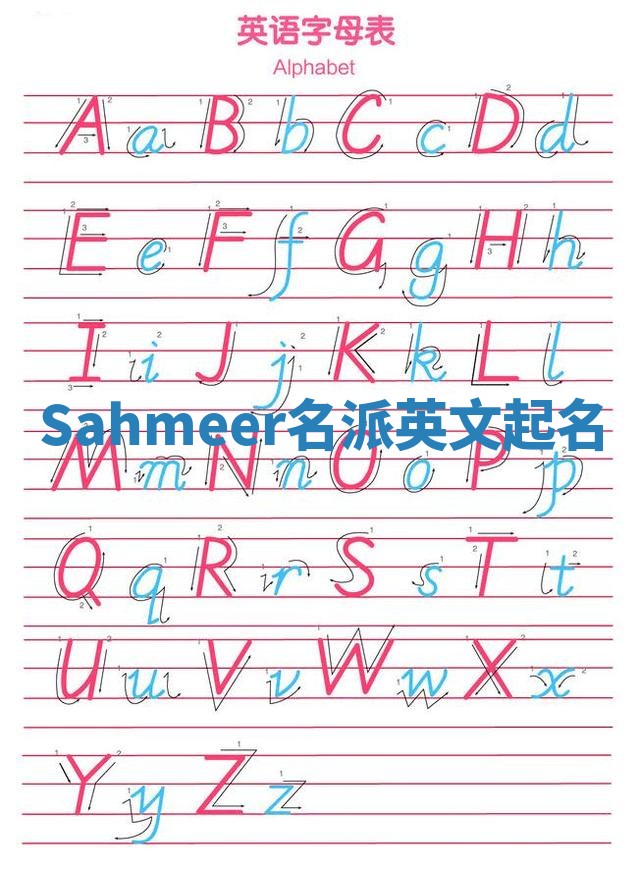 英语字母表
Alphabet
A a B b C c D d
E e F f G g H h
I i J j K k L l
Sahmeer名派英文起名
M m N n O o P p
Q q R r S s T t
U u V v W w X x
Y y Z z